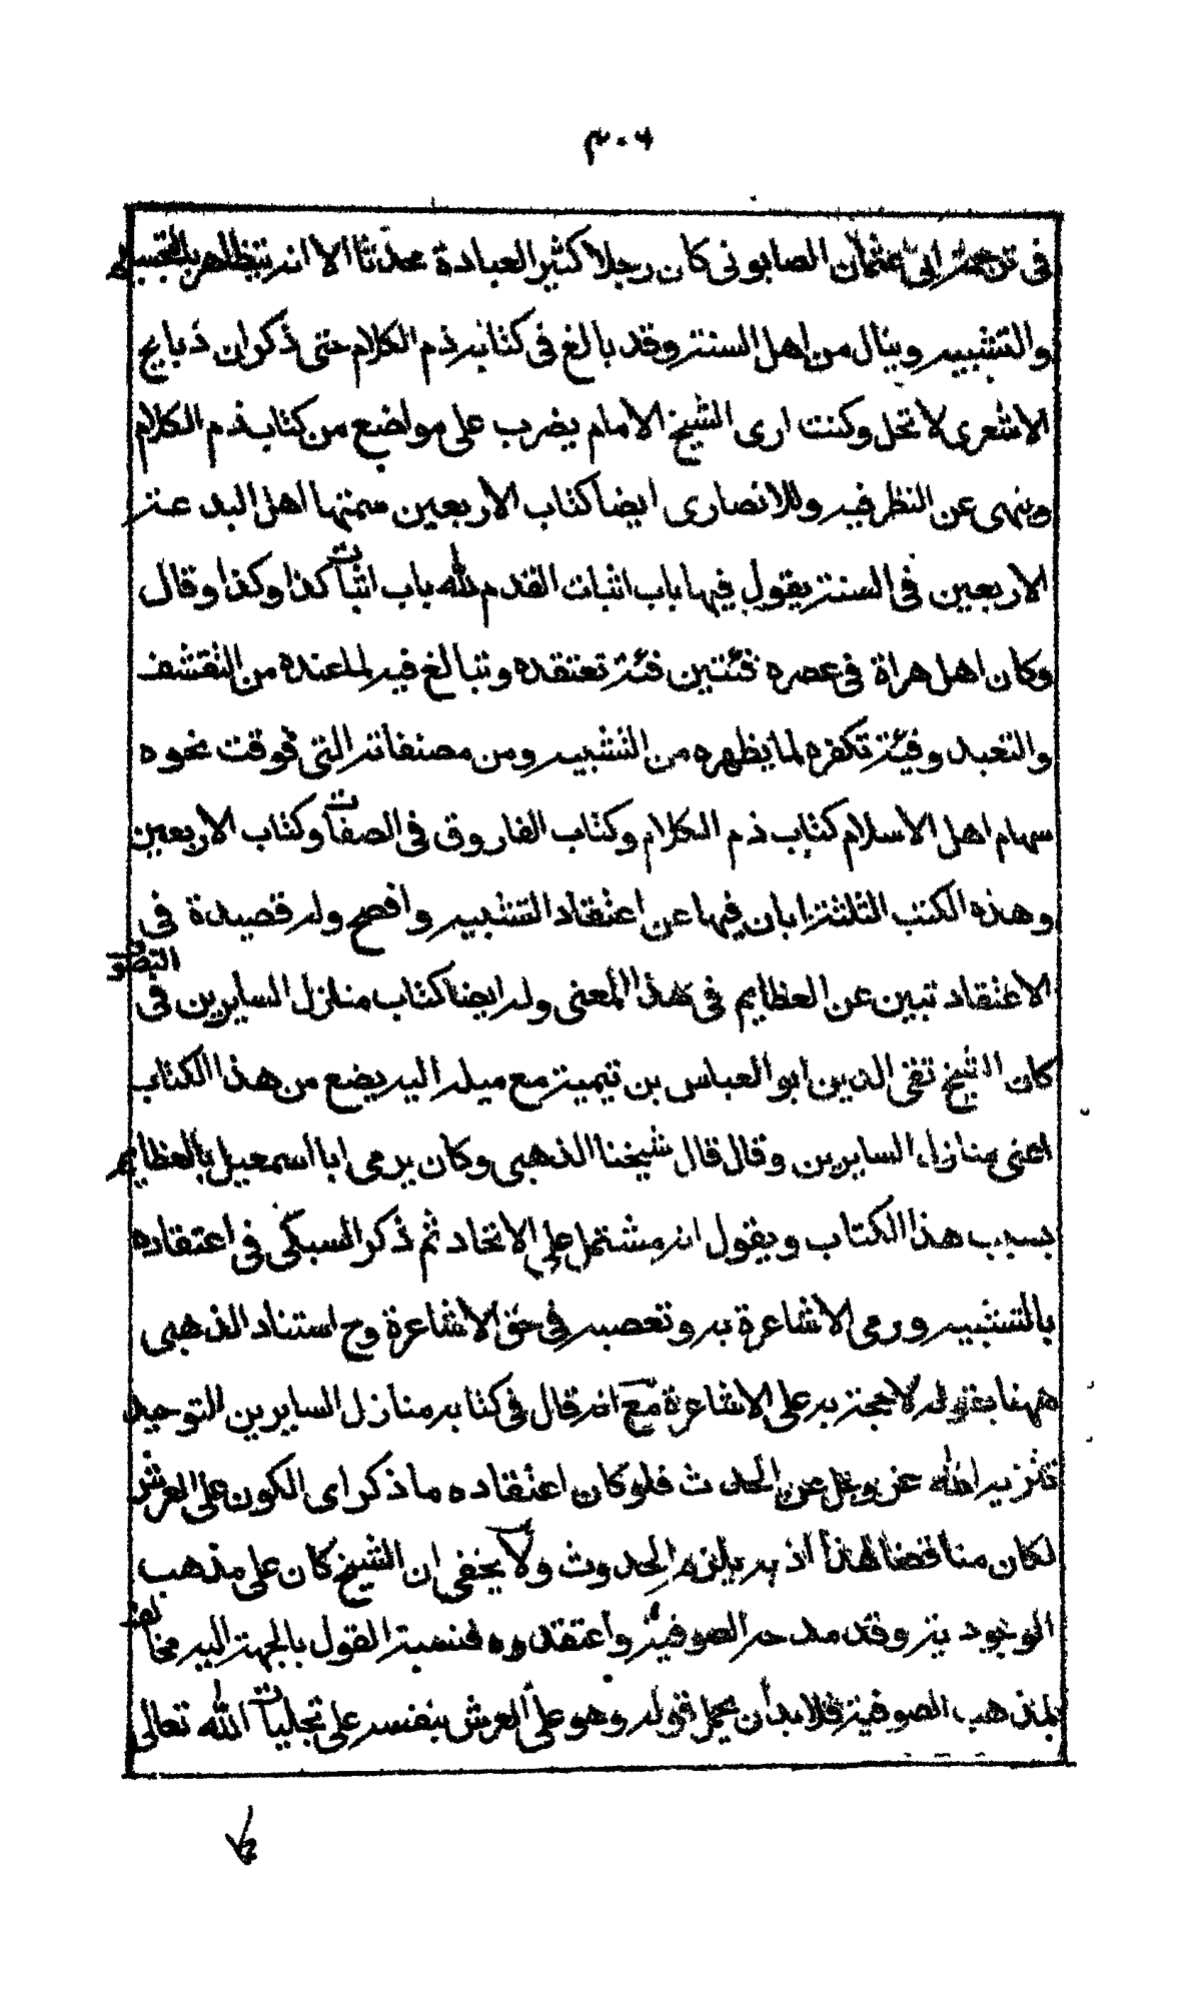 ٣٠٦
في ترجمة ابي عثمان الصابوني كان رجلا كثير العبادة محدثا الا انه يتظاهر بالتجسيم
والتشبيه وينال من اهل السنة وقد بالغ في كتابه ذم الكلام حتى ذكر ان ذبايح
الاشعرى لا تحل وكنت ارى الشيخ الامام يضرب على مواضع من كتاب ذم الكلام
وينهى عن النظر فيه وللانصارى ايضا كتاب الاربعين سمتها اهل البدعة
الاربعين في السنة يقول فيها باب اثبات القدم لله باب اثبات كذا وكذا وقال
وكان اهل هراة في عصره فئتين فئة تعتقده وتبالغ فيه لما عنده من التقشف
والتعبد وفئة تكفره لما يظهره من التشبيه ومن مصنفاته التي فوقت نحوه
سهام اهل الاسلام كتاب ذم الكلام وكتاب الفاروق في الصفات وكتاب الاربعين
وهذه الكتب الثلثة ابان فيها عن اعتقاد التشبيه وافصح وله قصيدة في
الاعتقاد تبين عن العظايم في هذا المعنى وله ايضا كتاب منازل السايرين في التصوف
كان الشيخ تقى الدين ابو العباس بن تيمية مع ميله اليه يضع من هذا الكتاب
اعنى منازل السايرين وقال قال شيخنا الذهبى وكان يرمى ابا اسمعيل بالعظايم
بسبب هذا الكتاب ويقول انه مشتمل على الاتحاد ثم ذكر السبكى في اعتقاده
بالتشبيه ورمى الاشاعرة به وتعصبه في حق الاشاعرة وح استناد الذهبى
ههنا بقوله لا حجة به على الاشاعرة مع انه قال في كتابه منازل السايرين التوحيد
تنزيه الله عز وجل عن الحدث فلو كان اعتقاده ما ذكر اى الكون على العرش
لكان مناقضا لهذا اذ به يلزم الحدوث ولا يخفى ان الشيخ كان على مذهب
الوجودية وقد مدحه الصوفية واعتقدوه فنسبة القول بالجهة اليه مخالفة
لمذهب الصوفية فلا بد ان يحمل قوله وهو على العرش بنفسه على تجليات الله تعالى